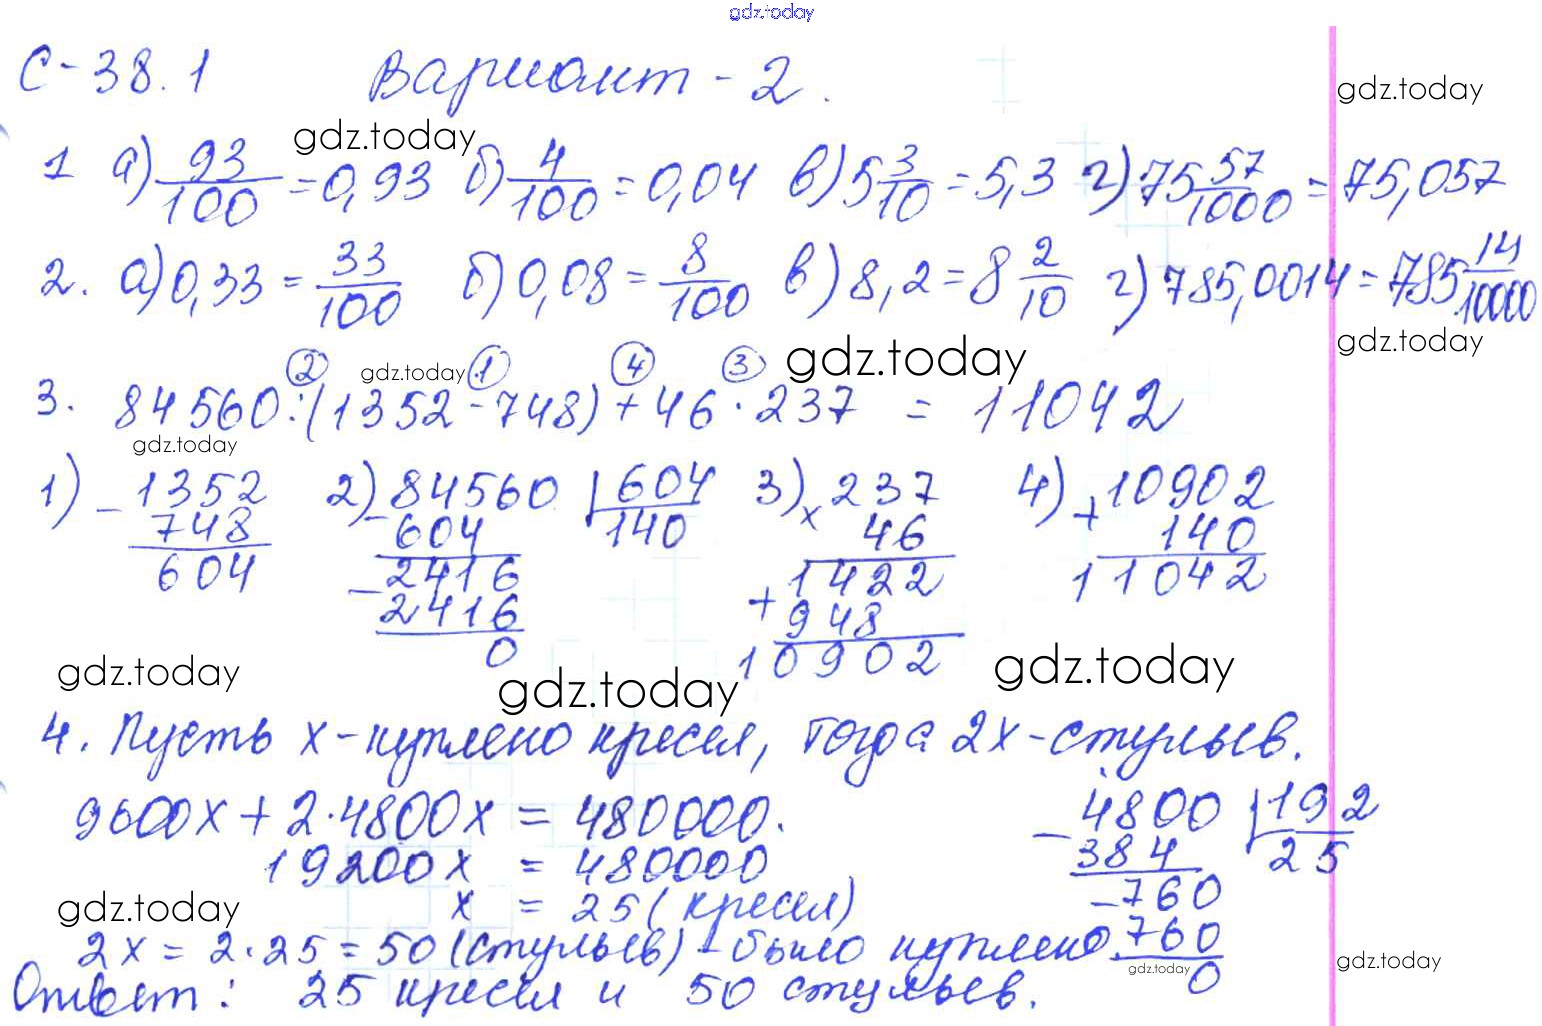 gdz.today
С-38.1 Вариант-2.
gdz.today
gdz.today
1 а) 93/100 = 0,93 б) 4/100 = 0,04 в) 5 3/10 = 5,3 г) 75 57/1000 = 75,057
2. а) 0,33 = 33/100 б) 0,08 = 8/100 в) 8,2 = 8 2/10 г) 785,0014 = 785 14/10000
gdz.today
② gdz.today ① ④ ③ gdz.today
3. 84560:(1352-748)+46·237 = 11042
gdz.today
1) - 1352 2) 84560 | 604 3) × 237 4) + 10902
748 - 604 140 46 140
604 - 2416 1422 11042
2416 + 948
0 10902
gdz.today gdz.today gdz.today
4. Пусть х-куплено кресел, тогда 2х-стульев.
9600х + 2·4800х = 480000. - 4800 | 192
19200х = 480000 384 25
gdz.today х = 25 (кресел) - 760
2х = 2·25 = 50 (стульев) - было куплено. 760
gdz.today 0 gdz.today
Ответ: 25 кресел и 50 стульев.